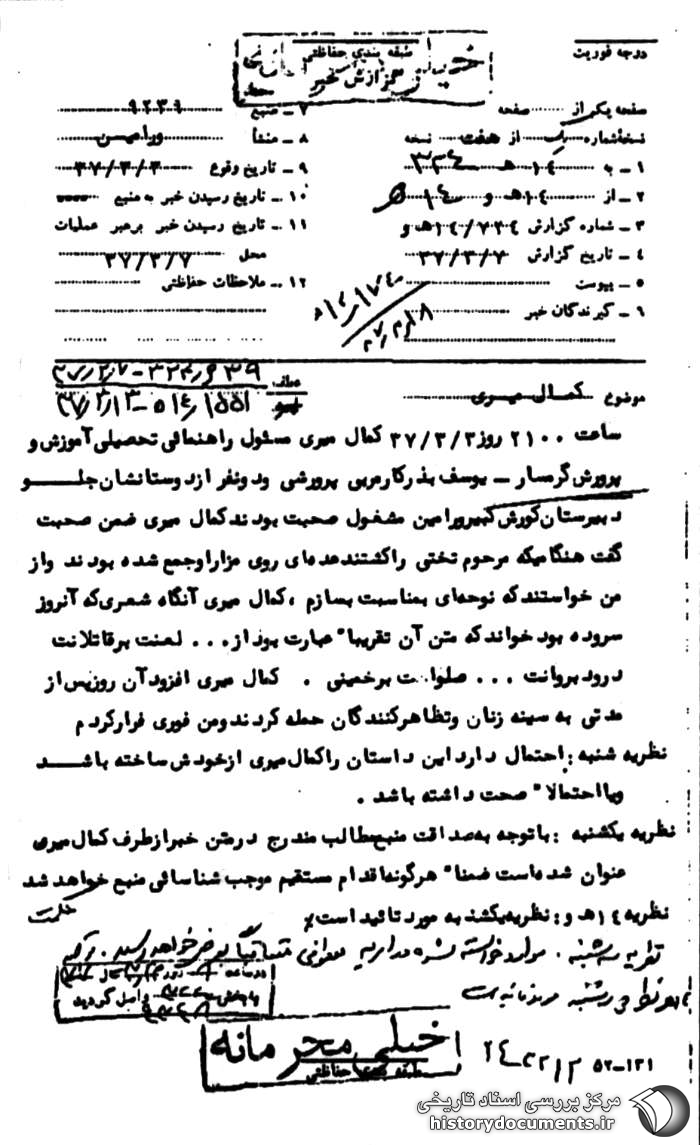 درجه فوریت
طبقه بندی حفاظتی
خیلی محرمانه
گزارش خبر
صفحه یک از صفحه
نسخه شماره یک از هفت نسخه
۱ - به ۳۳۴
۲ - از ۱۴هـ و
۳ - شماره گزارش ۱۴/۷۳۴هـ و
۴ - تاریخ گزارش ۳۷/۳/۷
۵ - پیوست
۶ - گیرندگان خبر
۷ - منبع ۹۲۳۶
۸ - منشأ ورامین
۹ - تاریخ وقوع ۳۷/۳/۳
۱۰ - تاریخ رسیدن خبر به منبع
۱۱ - تاریخ رسیدن خبر برهبر عملیات
محل ۳۷/۳/۷
۱۲ - ملاحظات حفاظتی
عطف
موضوع کمال میری
ساعت ۲۱۰۰ روز ۳۷/۳/۳ کمال میری مسئول راهنمائی تحصیلی آموزش و
پرورش گرمسار - یوسف بذرکار مربی پرورشی ودونفر ازدوستانشان جلو
دبیرستان کورش کبیر ورامین مشغول صحبت بودند کمال میری ضمن صحبت
گفت هنگامیکه مرحوم تختی راکشتند عده‌ای روی مزار اوجمع شده بودند واز
من خواستند که نوحه‌ای بمناسبت بسازم ، کمال میری آنگاه شعری که آنروز
سروده بود خواند که متن آن تقریبا" عبارت بود از ... لعنت برقاتلانت
درود بروانت ... صلوات برخمینی . کمال میری افزود آن روز پس از
مدتی به سینه زنان وتظاهرکنندگان حمله کردند ومن فوری فرار کردم
نظریه شنبه : احتمال دارد این داستان راکمال میری ازخودش ساخته باشد
ویا احتمالا" صحت داشته باشد .
نظریه یکشنبه : باتوجه به صداقت منبع مطالب مندرج درمتن خبر ازطرف کمال میری
عنوان شده است ضمنا" هرگونه اقدام مستقیم موجب شناسائی منبع خواهد شد
نظریه ۱۴هـ و : نظریه یکشنبه مورد تائید است
نظریه سه‌شنبه . موارد خواسته شده
خیلی محرمانه
طبقه بندی حفاظتی
۵۲-۱۳۱
مرکز بررسی اسناد تاریخی
historydocuments.ir